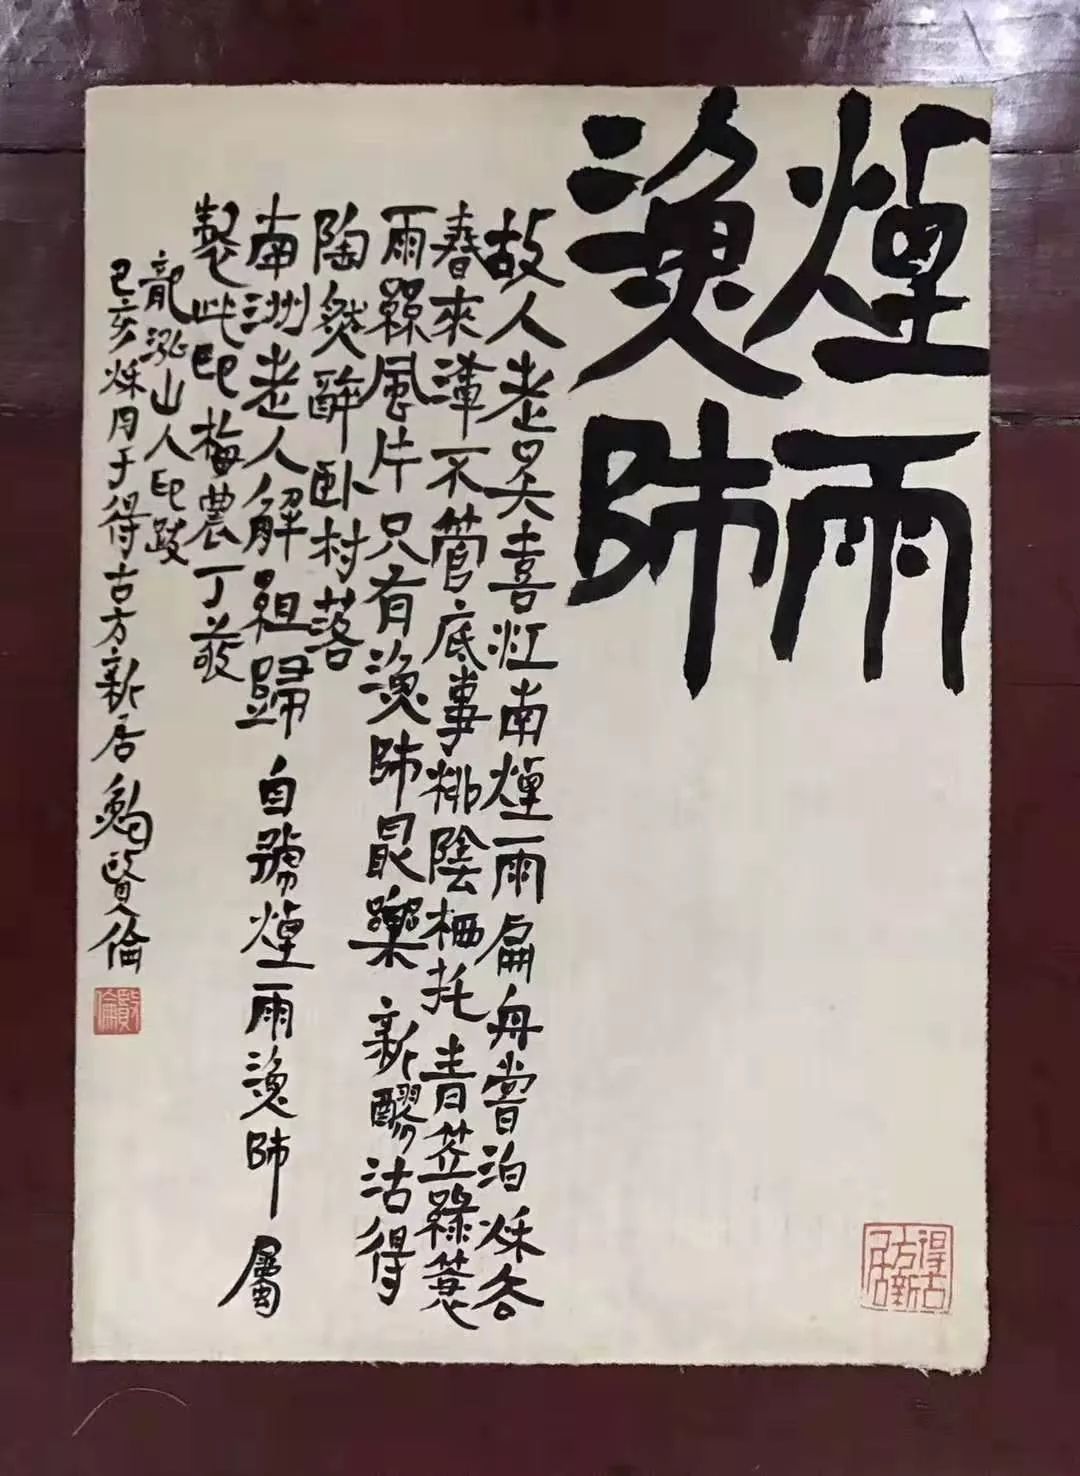 煙雨
漁師
故人老矣喜江南煙雨扁舟嘗泊秌去
春來渾不管底事桃陰栖托青笠綠蓑
雨絲風片只有漁師最樂新醪沽得
陶然醉卧村落
南洲老人解組歸自號煙雨漁師屬
製此印梅農丁敬
龍泓山人印跋
己亥秌月于得古方新居鮑賢倫
賢倫
得古方新居